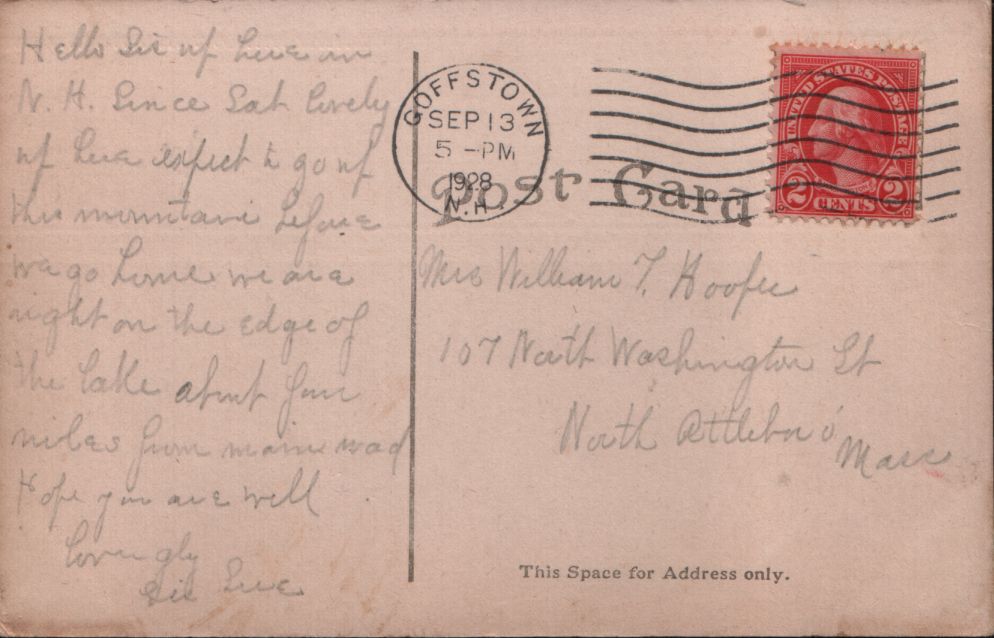 Hello Sis up here in
N. H. Since Sat lovely
up here expect to go up
the mountain before
we go home we are
right on the edge of
the lake about four
miles from main road
Hope you are well
lovingly
Sis
GOFFSTOWN
SEP 13
5 -PM
1928
N.H.
UNITED STATES POSTAGE
2 CENTS 2
Post Card
Mrs William T. Hooper
107 North Washington St
North Attleboro
Mass
This Space for Address only.